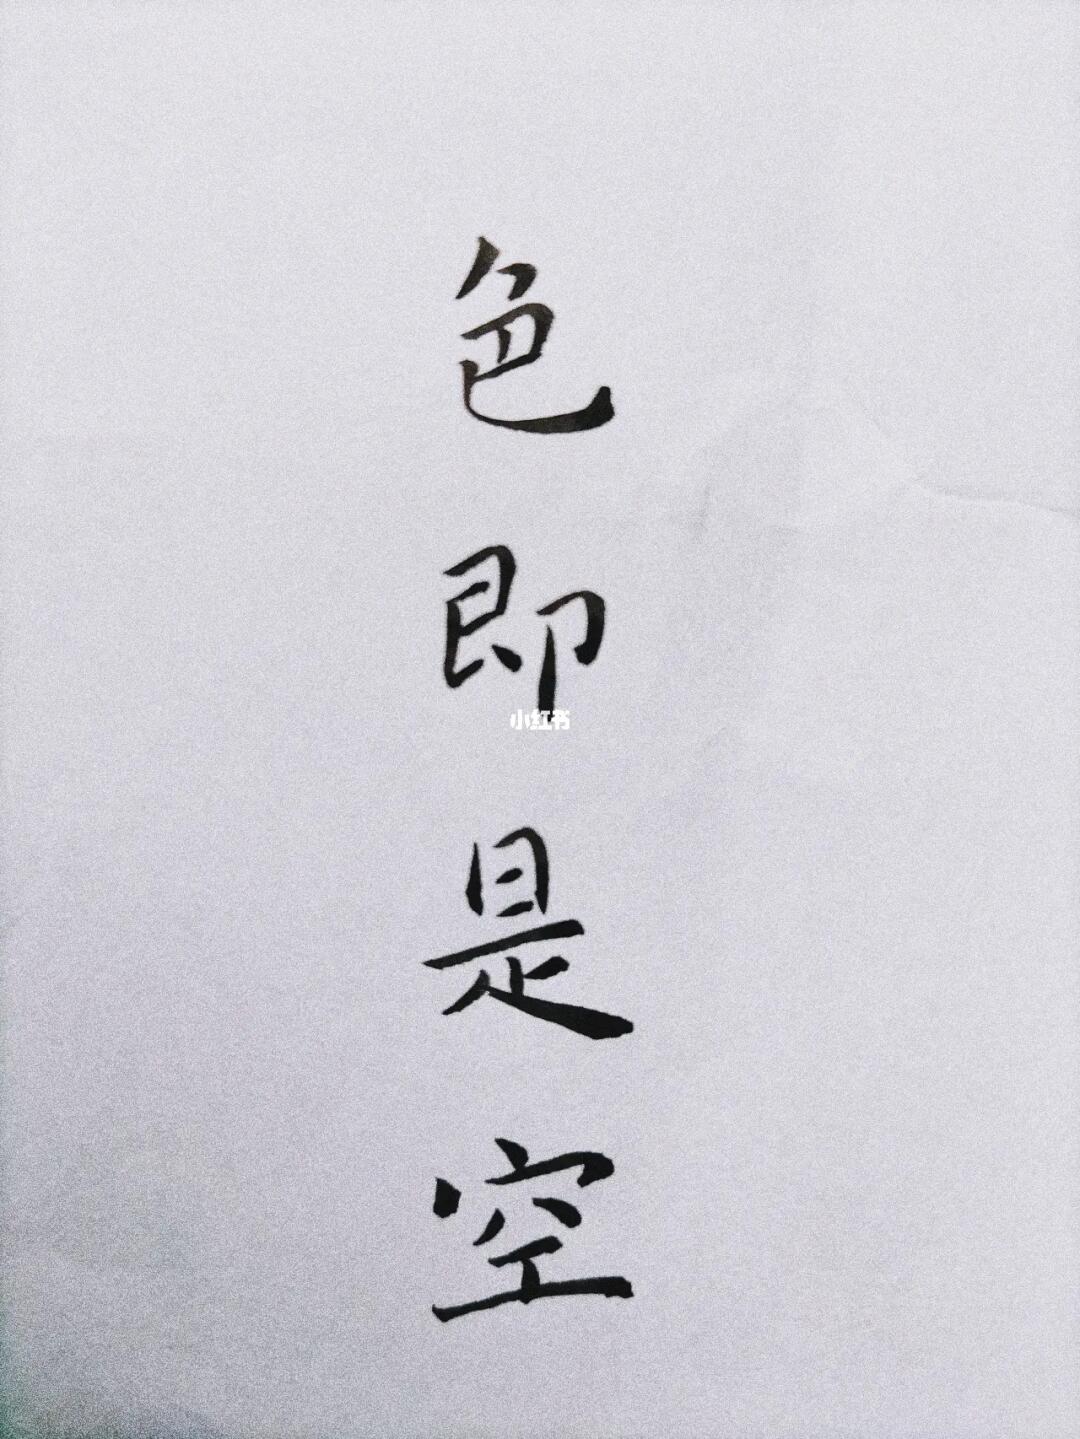 色即是空
小红书